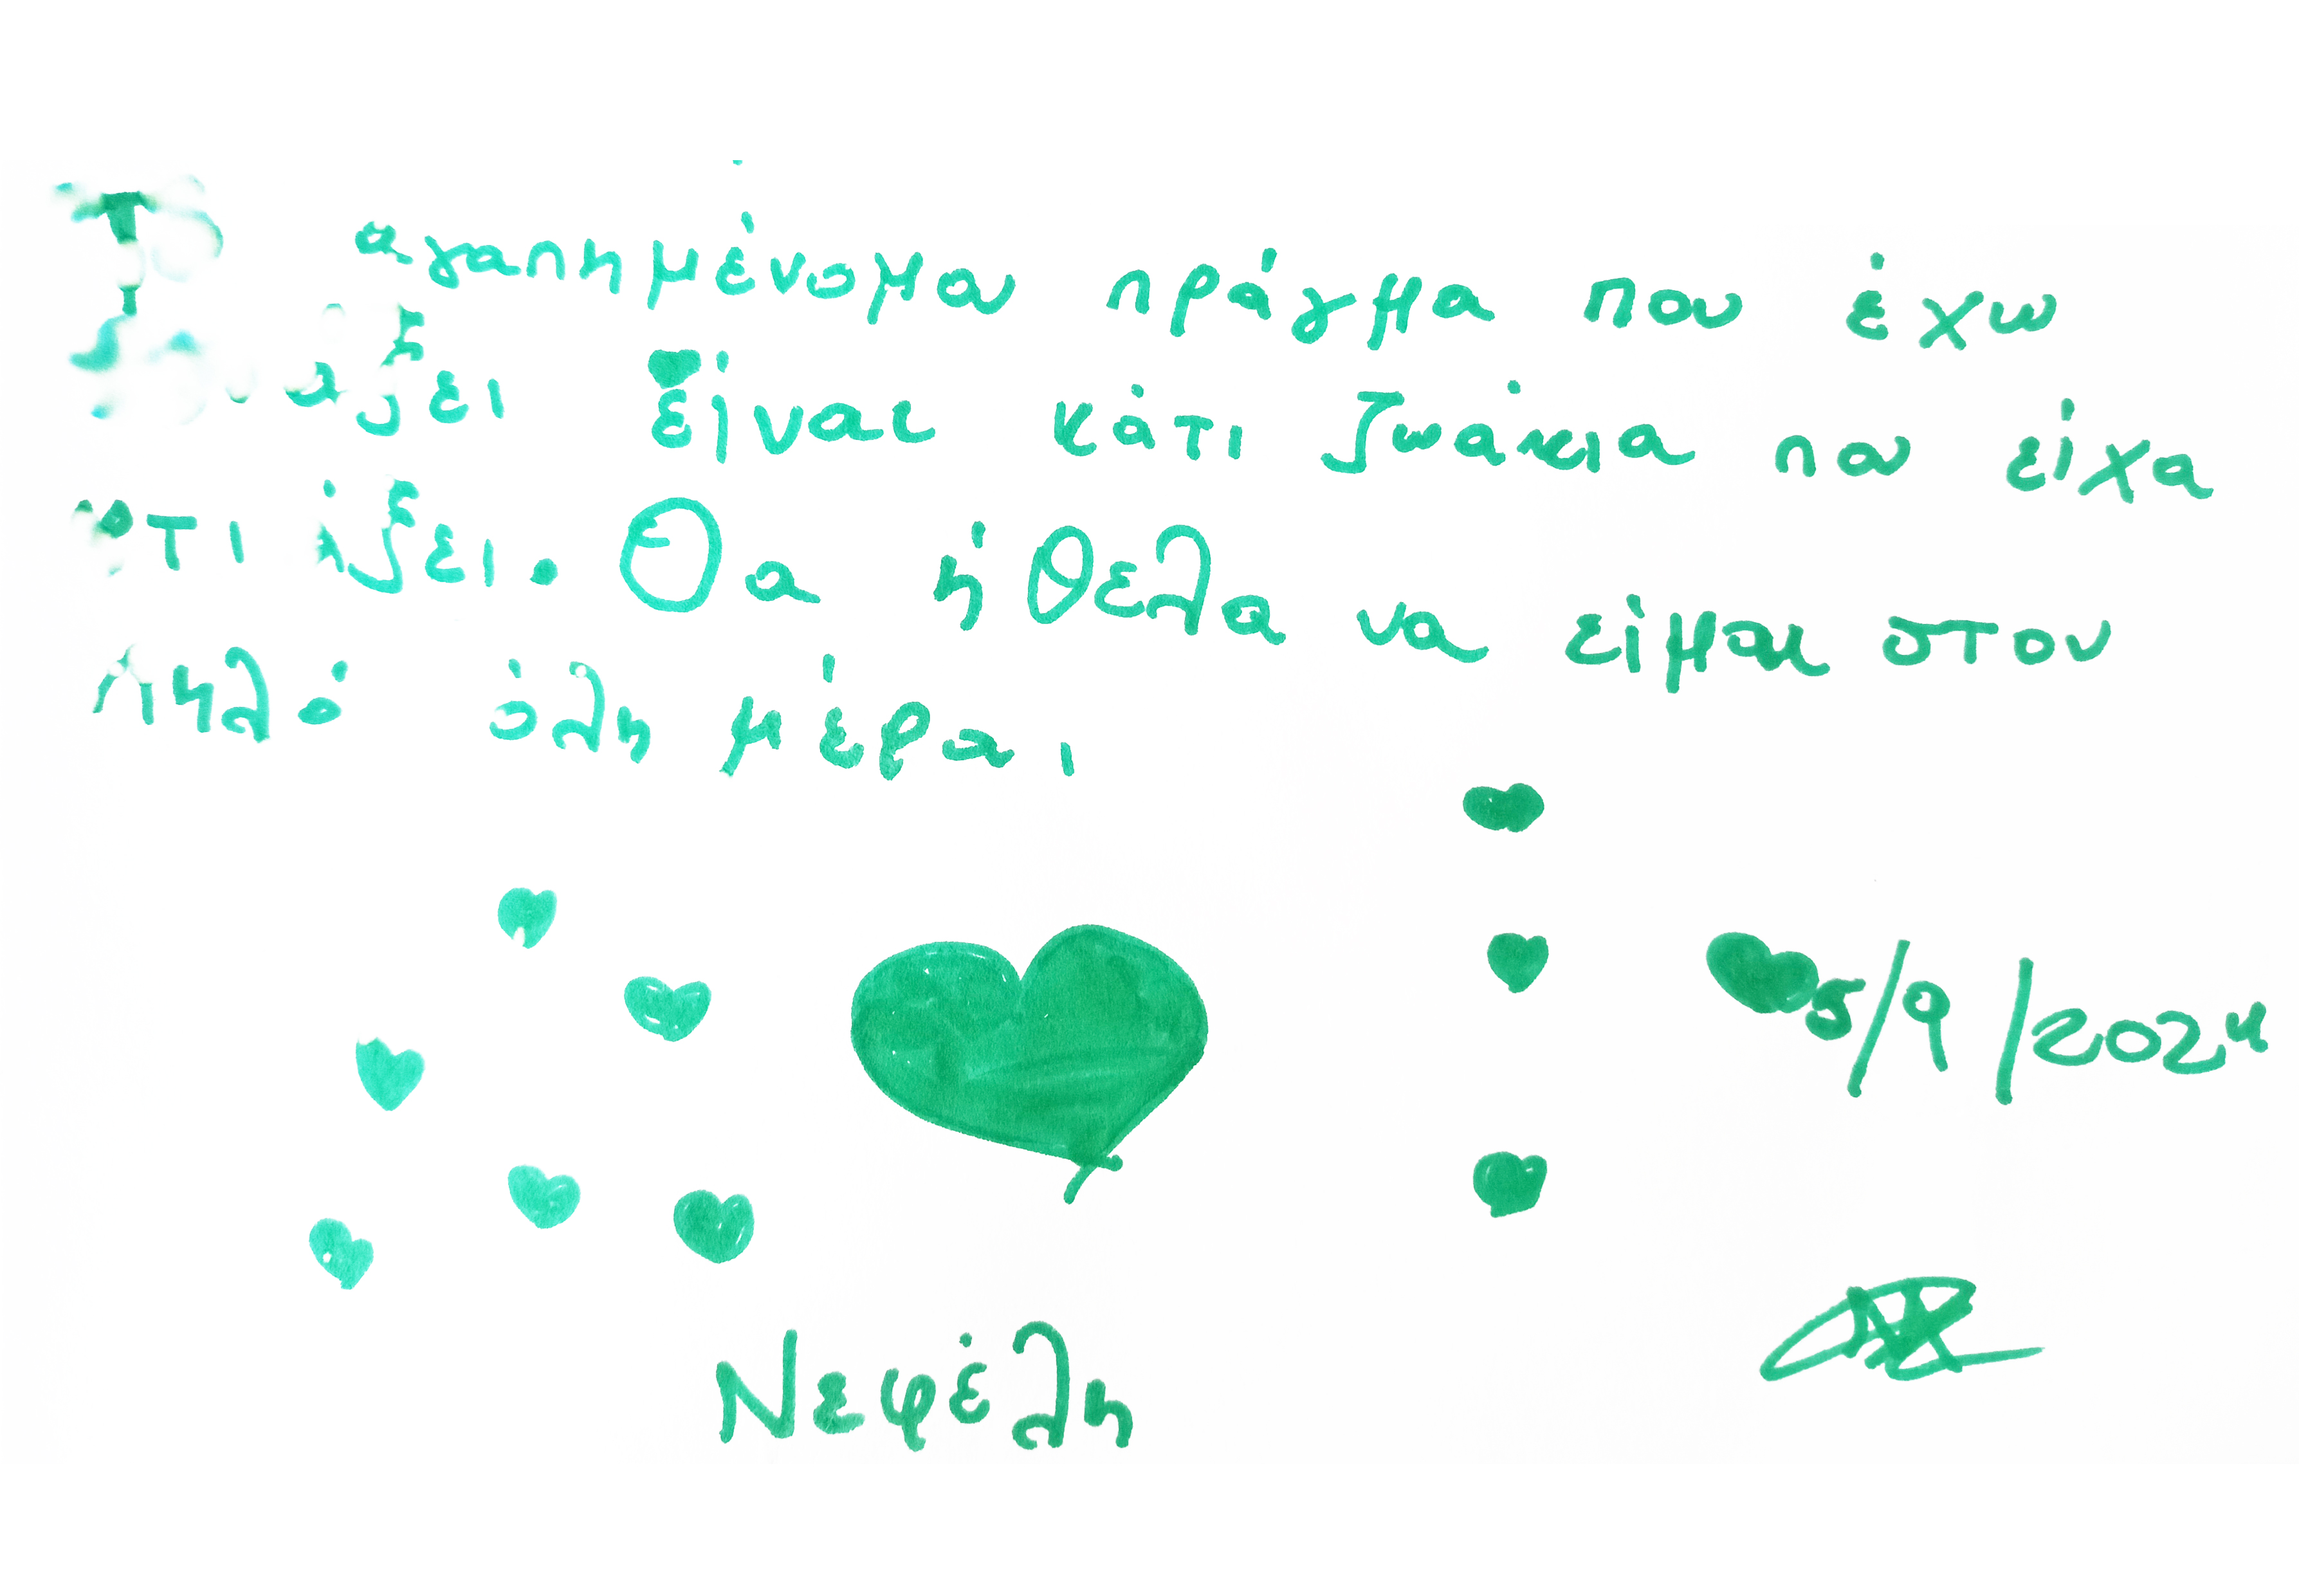 Το αγαπημένομα πράγμα που έχω
είναι κάτι ζωάκια που είχα
Θα ήθελα να είμαι στον
πηλό όλη μέρα.
5/9/2024
Νεφέλη